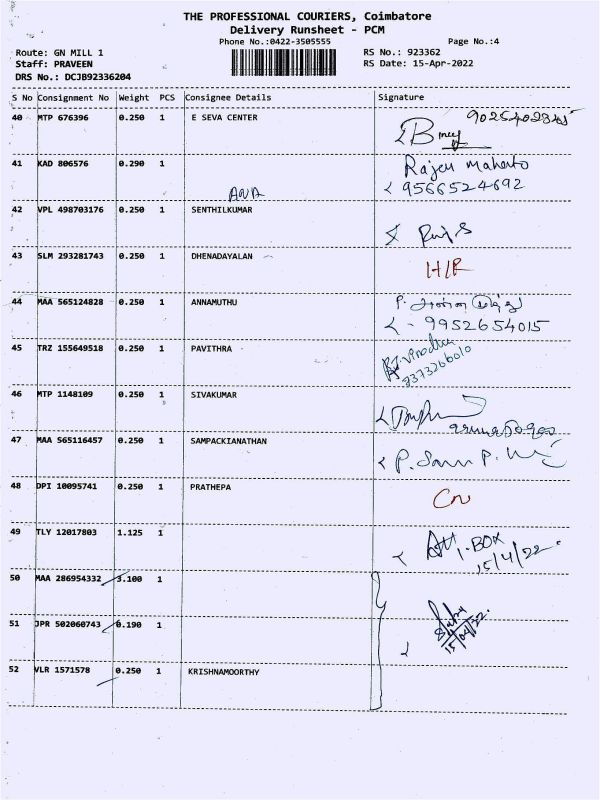 THE PROFESSIONAL COURIERS, Coimbatore
Delivery Runsheet - PCM
Phone No.:0422-3505555 Page No.:4
Route: GN MILL 1 RS No.: 923362
Staff: PRAVEEN RS Date: 15-Apr-2022
DRS No.: DCJB92336204
S No Consignment No Weight PCS Consignee Details Signature
40 MTP 676396 0.250 1 E SEVA CENTER
41 KAD 806576 0.290 1 Rajen Mahento
9566524692
42 VPL 498703176 0.250 1 SENTHILKUMAR
43 SLM 293281743 0.250 1 DHENADAYALAN H/R
44 MAA 565124828 0.250 1 ANNAMUTHU
9952654015
45 TRZ 155649518 0.250 1 PAVITHRA
46 MTP 1148109 0.250 1 SIVAKUMAR
47 MAA 565116457 0.250 1 SAMPACKIANATHAN
48 DPI 10095741 0.250 1 PRATHEPA
49 TLY 12017803 1.125 1 BOX
15/4/22
50 MAA 286954332 3.100 1
51 JPR 502060743 0.190 1
15/04/22
52 VLR 1571578 0.250 1 KRISHNAMOORTHY